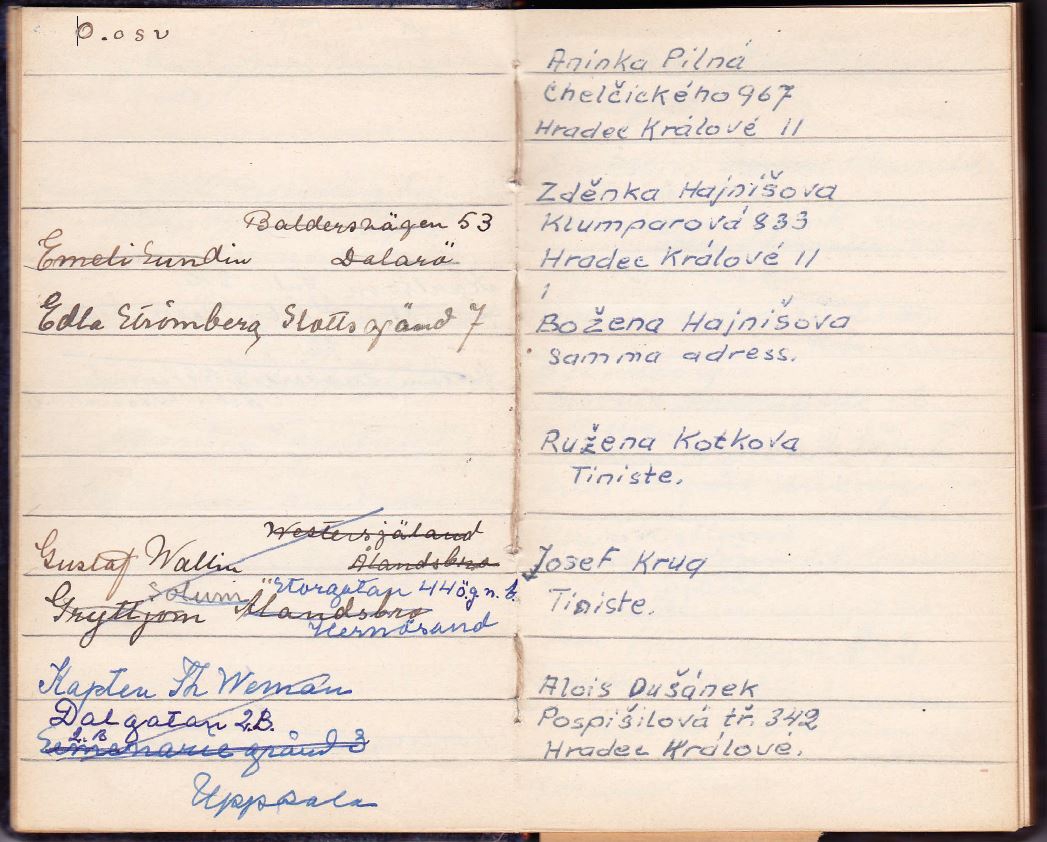 O.osv
Baldersvägen 53
Emeli Lundin Dalarö
Edla Strömberg, Slottsgränd 7
Westersjäland
Gustaf Wallin Ålandsbro
Solum Storgatan 44 ö.g. n.b.
Gryttjom Ålandsbro
Hernösand
Kapten Th Weman
Dalgatan 2.B.
2.B
gränd 3
Uppsala
Aninka Pilná
Chelčického 967
Hradec Králové II
Zděnka Hajnišova
Klumparová 833
Hradec Králové II
Božena Hajnišova
Samma adress.
Ružena Kotkova
Tiniste.
Josef Krug
Tiniste.
Alois Dušánek
Pospišilová tř. 342
Hradec Králové.